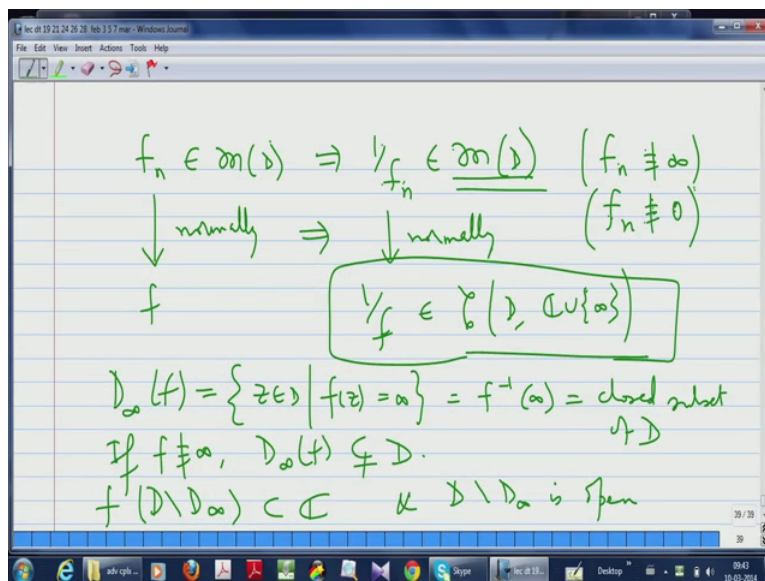 lec dt 19 21 24 26 28 feb 3 5 7 mar - Windows Journal
File Edit View Insert Actions Tools Help
fₙ ∈ 𝔪(D) ⇒ 1/fₙ ∈ 𝔪(D) (fₙ ≢ ∞)
↓ normally ⇒ ↓ normally (fₙ ≢ 0)
f 1/f ∈ ζ(D, ℂ∪{∞})
D∞(f) = {z∈D | f(z) = ∞} = f⁻¹(∞) = closed subset
of D
If f ≢ ∞, D∞(f) ⊊ D.
f(D\D∞) ⊂ ℂ & D\D∞ is open
39 / 39
39
adv cplx ...
Skype
lec dt 19...
Desktop
09:43
10-03-2014